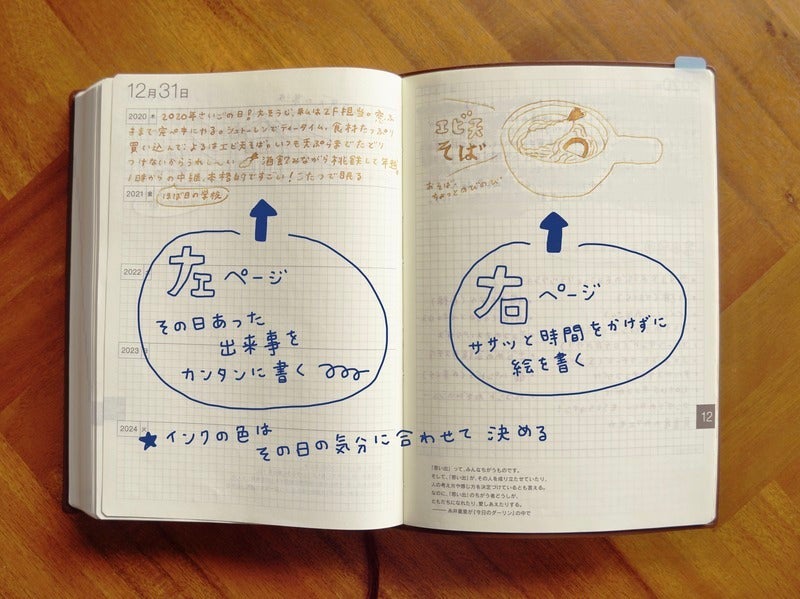 12月31日
2020 木 2020年さいごの日!大そうじ、私は2F担当の窓ふ
きまで完ぺきにやる。シュトーレンでティータイム。食材たっぷり
買い込んで、よるはエビ天そば。いつも天ぷらまでたどり
つけないからうれしいい 酒飲みながら桃鉄して年越。
1時からの中継、本格的ですごい!こたつで眠る
2021 金 ほぼ日の学校
2022 土
2023 日
2024 火
左ページ
その日あった
出来事を
カンタンに書く
★インクの色は
その日の気分に合わせて 決める
エビ天
そば
おそば、
ちょっとのびのび
右ページ
ササッと時間をかけずに
絵を書く
12
「思い出」って、みんなちがうものです。
そして、「思い出」が、その人を成り立たせていたり、
人の考え方や感じ方を決定づけているとも言える。
なのに、「思い出」のちがう者どうしが、
ともだちになれたり、愛しあえたりする。
──糸井重里が『今日のダーリン』の中で